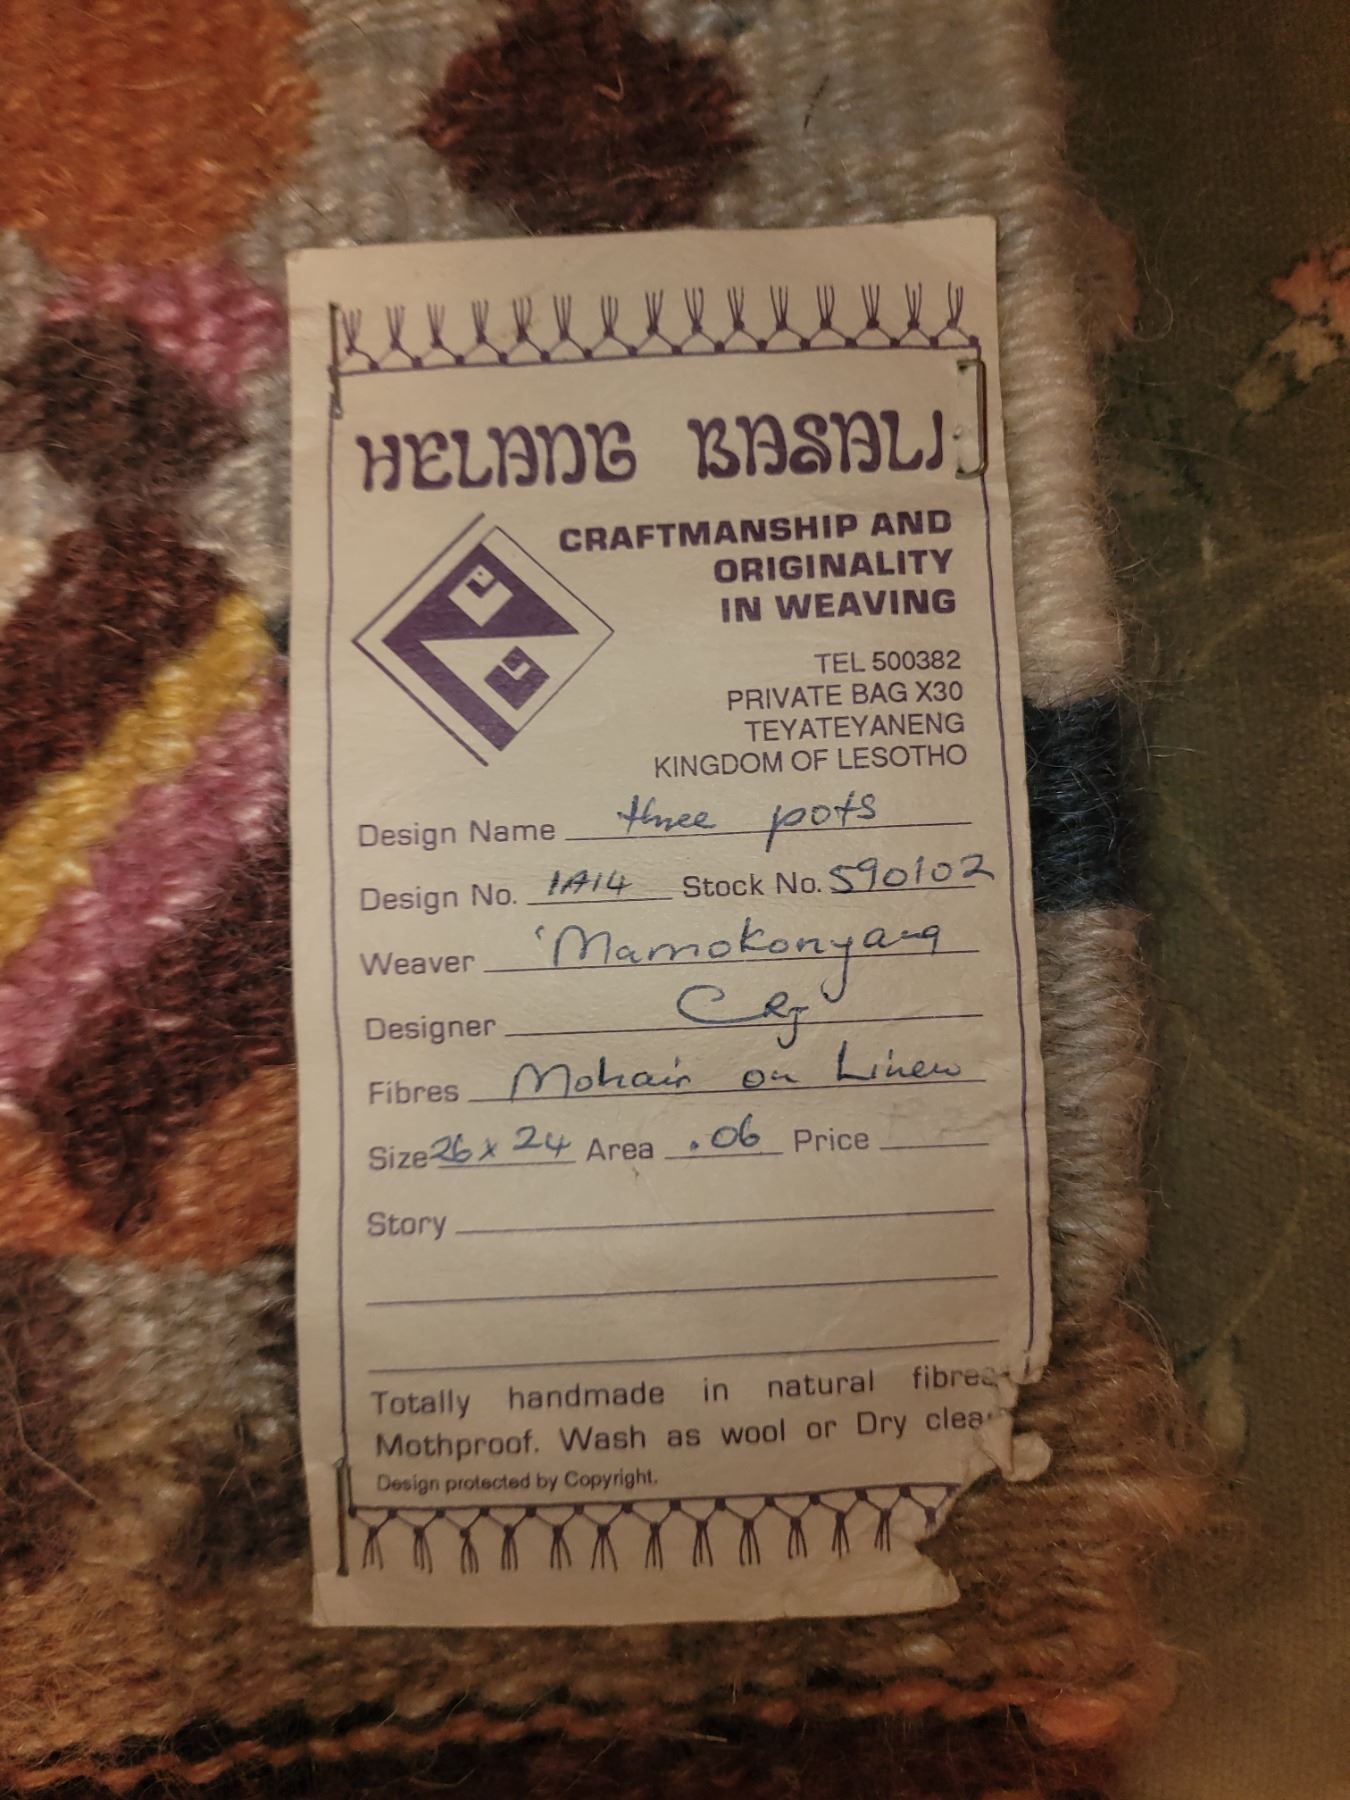 HELANG BASALI
CRAFTMANSHIP AND
ORIGINALITY
IN WEAVING
TEL 500382
PRIVATE BAG X30
TEYATEYANENG
KINGDOM OF LESOTHO
Design Name three pots
Design No. 1A14 Stock No. 590102
Weaver 'Mamokonyang
Designer
Fibres Mohair on Linen
Size 26 x 24 Area .06 Price
Story
Totally handmade in natural fibres
Mothproof. Wash as wool or Dry clea
Design protected by Copyright.